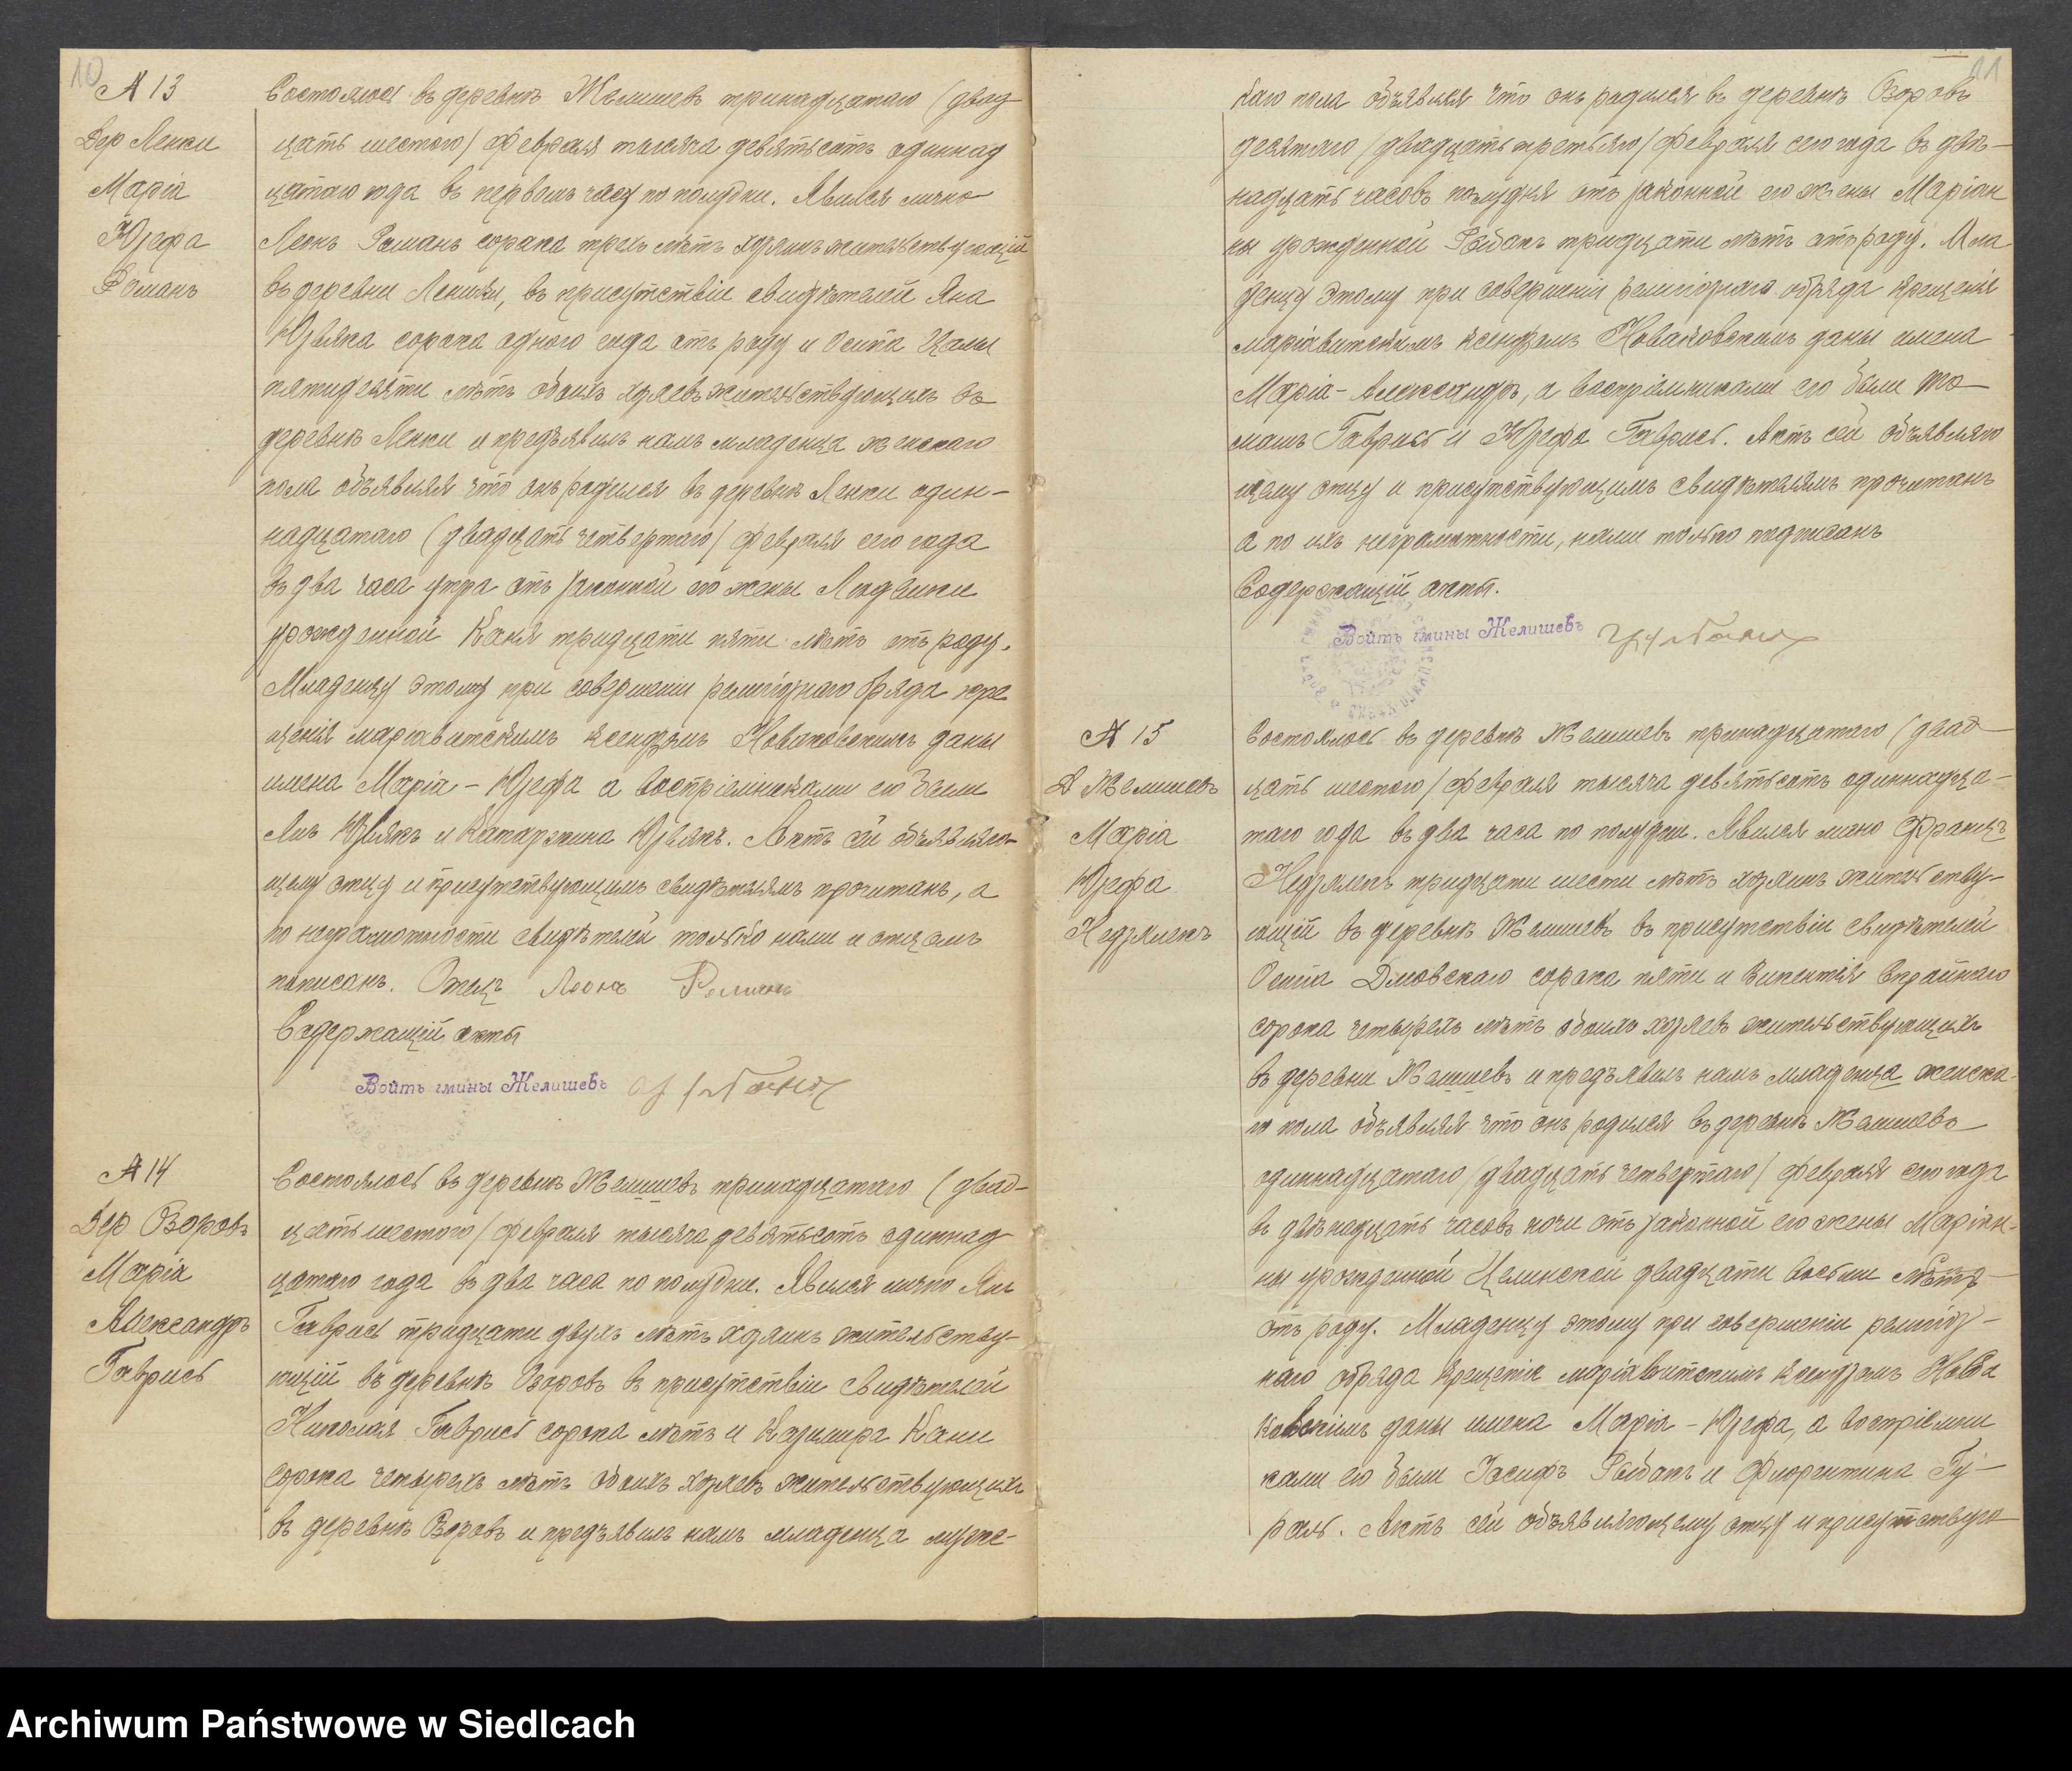 10
№ 13
Дер Ленки
Марія
Юзефа
Романъ
Состоялось въ деревнѣ Желишевъ тринадцатаго (двад
цать шестого) февраля тысяча девятьсотъ одиннад
цатаго года въ первомъ часу по полудни. Явился лично
Леонъ Романъ сорока трехъ лѣтъ хозяинъ жительствующій
въ деревни Ленки, въ присутствіи свидѣтелей Яна
Юзвяка сорока одного года отъ роду и Осипа
пятидесяти лѣтъ обоихъ хозяевъ жительствующихъ въ
деревнѣ Ленки и предъявилъ намъ младенца женскаго
пола объявляя что онъ родился въ деревнѣ Ленки один-
надцатаго (двадцать четвертаго) февраля сего года
въ два часа утра отъ законной его жены Людвики
урожденной Каня тридцати пяти лѣтъ отъ роду.
Младенцу этому при совершеніи религіознаго обряда кре
щенія маріавитскимъ ксендзомъ Новаковскимъ даны
имена Марія - Юзефа а воспріемниками его были
Янъ Юзвякъ и Катаржина Юзвякъ. Актъ сей объявляю-
щему отцу и присутствующимъ свидѣтелямъ прочитанъ, а
по неграмотности свидѣтелей только нами и отцемъ
пописанъ. Отецъ Леонъ Романъ
Содержащій акты
Войтъ гмины Желишевъ
№ 14
Дер Озоровъ
Марія
Александръ
Гаврись
Состоялось въ деревнѣ Желишевъ тринадцатаго (двад-
цать шестого) февраля тысяча девятьсотъ одиннад
цатаго года въ два часа по полудни. Явился лично Янъ
Гаврись тридцати двухъ лѣтъ хозяинъ жительству-
ющій въ деревнѣ Озоровъ въ присутствіи свидѣтелей
Николая Гаврись сорока лѣтъ и Казимира Кани
сорока четырехъ лѣтъ обоихъ хозяевъ жительствующихъ
въ деревнѣ Озоровъ и предъявилъ намъ младенца мужс-
11
каго пола объявляя что онъ родился въ деревнѣ Озоровъ
девятаго (двадцать третьяго) февраля сего года въ двѣ-
надцать часовъ полудня отъ законной его жены Маріан
ны урожденной Рыбакъ тридцати лѣтъ отъ роду. Мла
денцу этому при совершеніи религіознаго обряда крещенія
маріавитскимъ ксендзомъ Новаковскимъ даны имена
Марія - Александръ, а воспріемниками его были То
машъ Гаврись и Юзефа Гаврись. Актъ сей объявляю
щему отцу и присутствующимъ свидѣтелямъ прочитанъ
а по ихъ неграмотности, нами только подписанъ
Содержащій акты.
Войтъ гмины Желишевъ
№ 15
Д Желишевъ
Марія
Юзефа
Недзялекъ
Состоялось въ деревнѣ Желишевъ тринадцатаго (двад
цать шестого) февраля тысяча девятьсотъ одиннадца-
таго года въ два часа по полудни. Явился лично Францъ
Недзялекъ тридцати шести лѣтъ хозяинъ жительству-
ющій въ деревнѣ Желишевъ въ присутствіи свидѣтелей
Осипа Дмовскаго сорока пяти и Викентія Скрайнаго
сорока четырехъ лѣтъ обоихъ хозяевъ жительствующихъ
въ деревни Желишевъ и предъявилъ намъ младенца женска-
го пола объявляя что онъ родился въ деревнѣ Желишевъ
одиннадцатаго (двадцать четвертаго) февраля сего года
въ двѣнадцать часовъ ночи отъ законной его жены Маріан-
ны урожденной Целинской двадцати восьми лѣтъ
отъ роду. Младенцу этому при совершеніи религіоз-
наго обряда крещенія маріавитскимъ ксендзомъ Нова
ковскимъ даны имена Марія - Юзефа, а воспріемни
ками его были Іосифъ Рыбакъ и Флорентина Гу-
раль. Актъ сей объявляющему отцу и присутствую
Archiwum Państwowe w Siedlcach